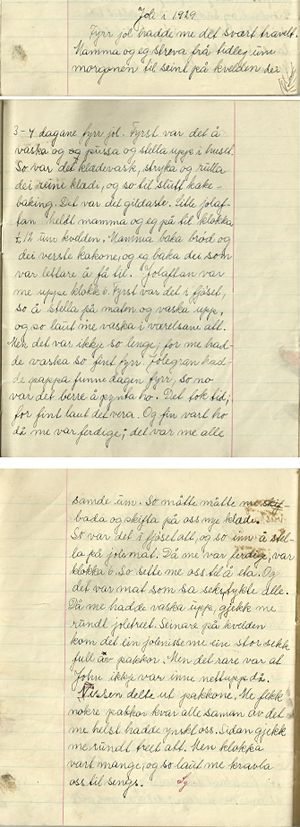 Jol i 1929
Fyrr jol hadde me det svært travelt.
Mamma og eg streva frå tidleg um
morgonen til seint på kvelden dei
3-4 dagane fyrr jol. Fyrst var det å
vaska og og pussa og stella uppe i huset.
So var det klædevask, stryka og rulla
dei reine klæde, og so til slutt kake-
baking. Det var det gildaste. Litle jolaf-
tan heldt mamma og eg på til klokka
½ 12 um kvelden. Mamma baka brød og
dei verste kakone, og eg baka dei som
var lettare å få til. Jolaftan var
me uppe klokk 6. Fyrst var det i fjøset,
so å stella på maten og vaska upp,
og so laut me vaska i værelsane att.
Men det var ikkje so lenge, for me had-
de vaska so fint fyrr. Jolegran had-
de pappa funne dagen fyrr, so no
var det berre å pynta ho. Det tok tid,
for fint laut det vera. Og fin vart ho
då me var ferdige; det var me alle
samde um. So måtte måtte me
bada og skifta på oss nye klæde.
So var det i fjøset att, og so inn å stel-
la på jolemat. Då me var ferdig, var
klokka 6. So sette me oss til å eta. Og
det var mat som sa seks fylte alle.
Då me hadde vaska upp, gjekk me
rundt joletreet. Seinare på kvelden
kom det ein jolenisse me ein stor sekk
full av pakkor. Men det rare var at
John ikkje var inne nettupp då.
Nissen delte ut pakkone. Me fekk
nokre pakkar kvar alle saman av det
me helst hadde ynskt oss. Sidan gjekk
me rundt treet att. Men klokka
vart mange, og so laut me kravla
oss til sengs.